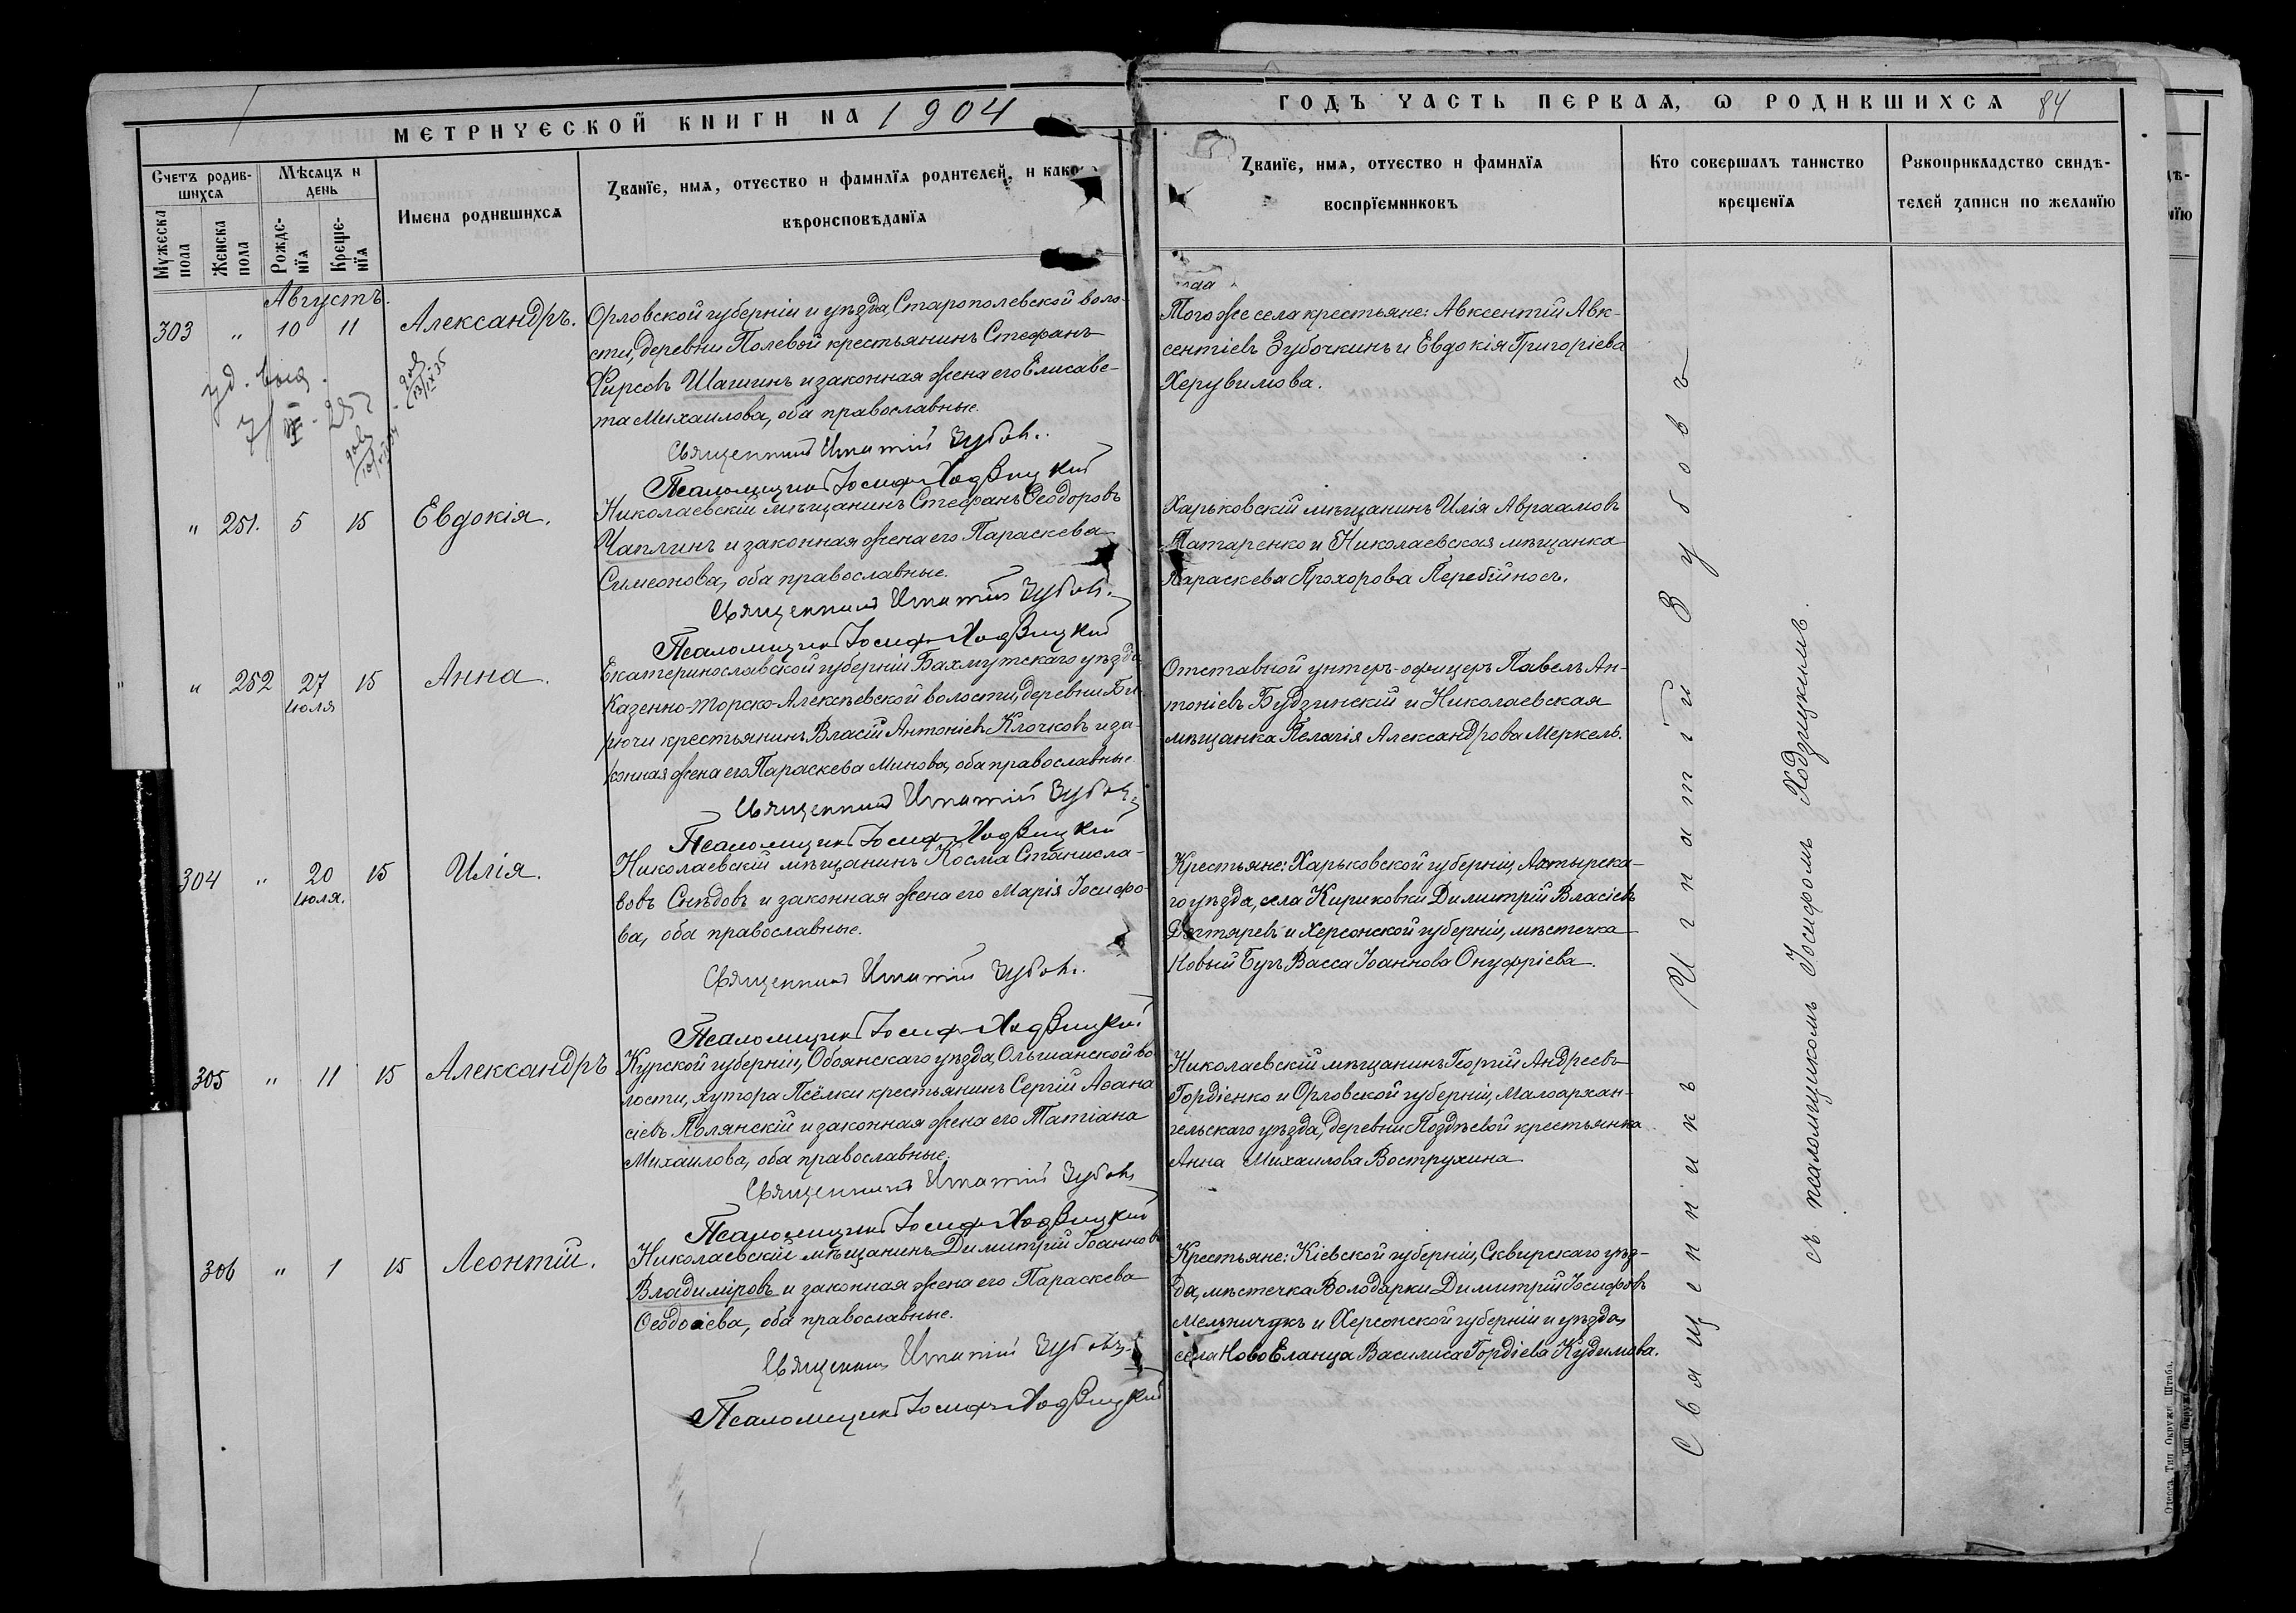 МЕТРИЧЕСКОЙ КНИГИ НА 1904
Счетъ родив-
шихся
Мѣсяцъ и
день
Мужеска
пола
Женска
пола
Рожде-
нія
Креще-
нія
Имена родившихся
Званіе, имя, отчество и фамилія родителей, и како
вѣроисповѣданія
Августъ.
303 " 10 11 Александръ.
Орловской губерніи и уѣзда, Старополевской воло-
сти, деревни Полевой крестьянинъ Стефанъ
Фирсовъ Шашинъ и законная жена его Елисаве-
та Михаилова, оба православные.
Священникъ Игнатій Зубовъ.
Псаломщикъ Іосифъ Ходзицкій
" 251. 5 15 Евдокія.
Николаевскій мѣщанинъ Стефанъ Ѳеодоровъ
Чаплинъ и законная жена его Параскева
Симеонова, оба православные.
Священникъ Игнатій Зубовъ.
Псаломщикъ Іосифъ Ходзицкій
" 252 27 15 Анна.
Іюля
Екатеринославской губерніи Бахмутскаго уѣзда
Казенно-Торско-Алексѣевской волости, деревни
крестьянинъ Власій Антоніевъ Клочковъ и за-
конная жена его Параскева Минова, оба православные.
Священникъ Игнатій Зубовъ
Псаломщикъ Іосифъ Ходзицкій
304 " 20 15 Илія.
Іюля.
Николаевскій мѣщанинъ Косма Станисла-
вовъ Снѣдовъ и законная жена его Марія Іосифо-
ва, оба православные.
Священникъ Игнатій Зубовъ.
Псаломщикъ Іосифъ Ходзицкій
305 " 11 15 Александръ
Курской губерніи, Обоянскаго уѣзда, Ольшанской во
лости, хутора Псёлки крестьянинъ Сергій Аѳана
сіевъ Полянскій и законная жена его Татіана
Михаилова, оба православные.
Священникъ Игнатій Зубовъ
Псаломщикъ Іосифъ Ходзицкій
306 " 1 15 Леонтій.
Николаевскій мѣщанинъ Димитрій Іоанновъ
Владиміровъ и законная жена его Параскева
Ѳеодосіева, оба православные.
Священникъ Игнатій Зубовъ
Псаломщикъ Іосифъ Ходзицкій
ГОДЪ ЧАСТЬ ПЕРВАЯ, Ѡ РОДИВШИХСЯ 84
Званіе, имя, отчество и фамилія
воспріемниковъ
Кто совершалъ таинство
крещенія
Рукоприкладство свидѣ-
телей записи по желанію
Того же села крестьяне: Авксентій Авк-
сентіевъ Зубочкинъ и Евдокія Григоріева
Херувимова.
Харьковскій мѣщанинъ Илія Авраамовъ
Татаренко и Николаевская мѣщанка
Параскева Прохорова Перебійносъ.
Отставной унтеръ-офицеръ Павелъ Ан-
тоніевъ Будзинскій и Николаевская
мѣщанка Пелагія Александрова Меркель.
Крестьяне: Харьковской губерніи, Ахтырска-
го уѣзда, села Кириковки Димитрій Власіевъ
Дегтяревъ и Херсонской губерніи, мѣстечка
Новый Бугъ Васса Іоаннова Онуфріева.
Николаевскій мѣщанинъ Георгій Андреевъ
Гордіенко и Орловской губерніи, Малоархан-
гельскаго уѣзда, деревни Поздѣевой крестьянка
Анна Михаилова Вострухина
Крестьяне: Кіевской губерніи, Сквирскаго уѣз-
да, мѣстечка Володарки Димитрій Іосифовъ
Мельничукъ и Херсонской губерніи и уѣзда,
села Ново Еланца Василиса Гордіева Кудимова.
Священникъ Игнатій Зубовъ
съ псаломщикомъ Іосифомъ Ходзицкимъ.
Одесса, Тип. Окружн. Штаба.